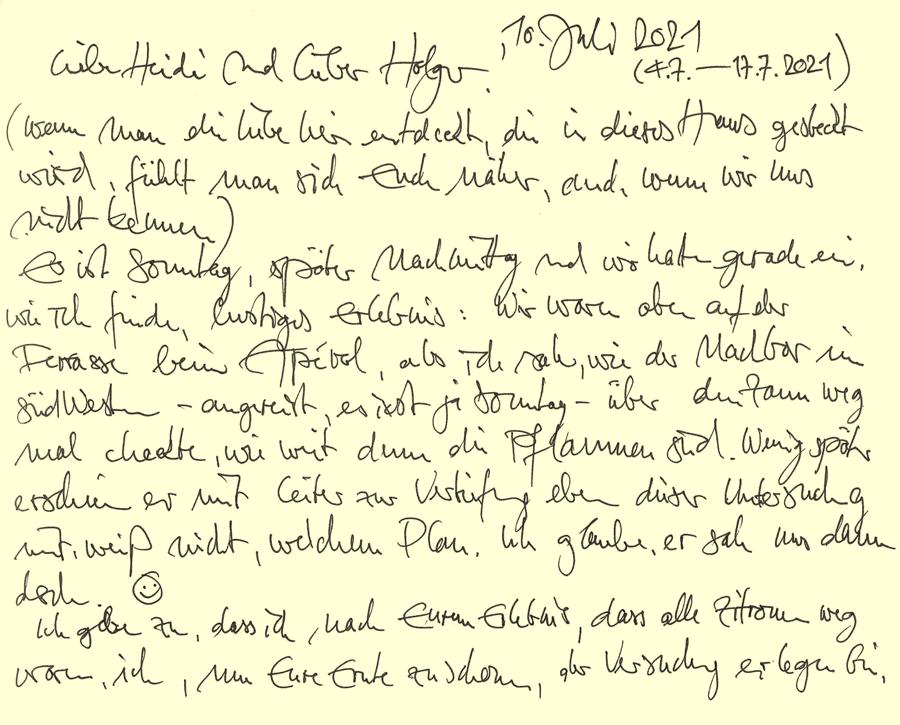 , 10. Juli 2021
Liebe Heidi und lieber Holger.
(4.7. — 17.7.2021)
(wenn man die Liebe hier entdeckt, die in dieses Haus gesteckt
wird, fühlt man sich Euch näher, auch wenn wir uns
nicht kennen)
Es ist Sonntag, später Nachmittag und wir hatten gerade ein,
wie ich finde, lustiges Erlebnis: Wir waren oben auf der
Terrasse beim Apérol, als ich sah, wie der Nachbar im
Südwesten – angereist, es ist ja Sonntag – über den Zaun weg
mal checkte, wie weit denn die Pflaumen sind. Wenig später
erschien er mit Leiter zur Vertiefung eben dieser Untersuchung
mit, weiß nicht, welchem Plan. Ich glaube, er sah uns dann
doch. ☺
Ich gebe zu, dass ich, nach Eurem Erlebnis, dass alle Zitronen weg
waren, ich, um Eure Ernte zu schonen, der Versuchung erlegen bin,